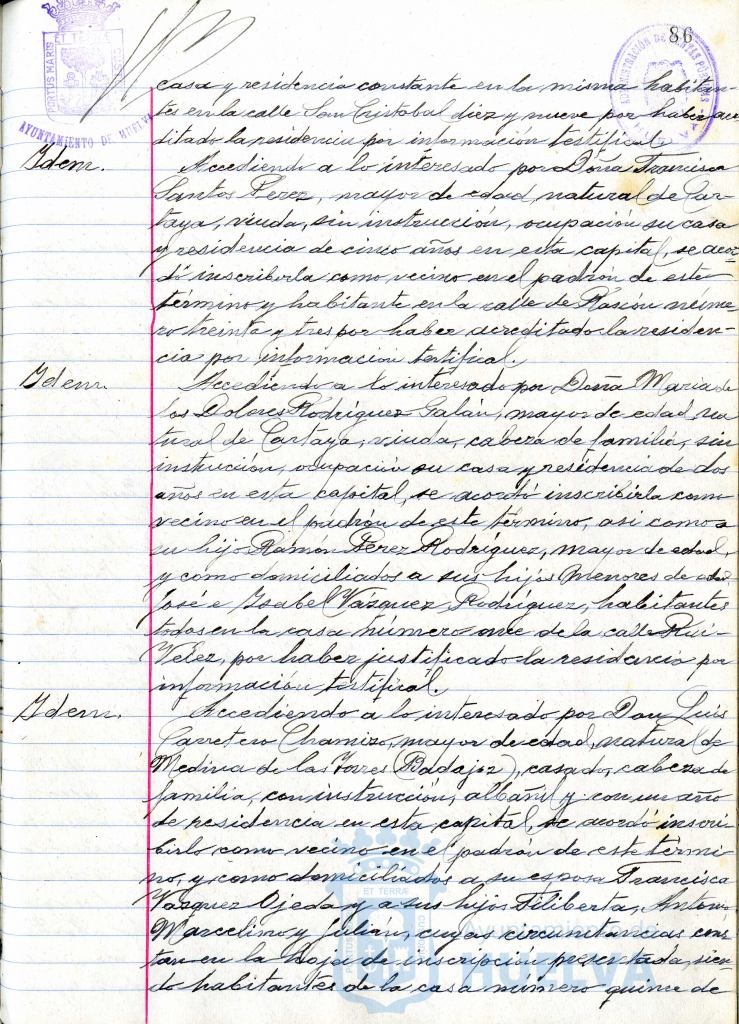 86
PORTUS MARIS ET TERRÆ CUSTODIA
AYUNTAMIENTO DE HUELVA
casa y residencia constante en la misma habitan-
tes en la calle San Cristobal diez y nueve por haber acre
ditado la residencia por información testifical.
Idem. Accediendo a lo interesado por Doña Francisca
Santos Perez, mayor de edad, natural de Car-
taya, viuda, sin instrucción, ocupación su casa
y residencia de cinco años en esta capital, se acor-
dó inscribirla como vecino en el padrón de este
término y habitante en la calle de Rascón núme-
ro treinta y tres por haber acreditado la residen-
cia por información testifical
Idem. Accediendo a lo interesado por Doña Maria de
los Dolores Rodríguez Galán, mayor de edad, na
tural de Cartaya, viuda, cabeza de familia, sin
instrucción, ocupación su casa y residencia de dos
años en esta capital, se acordó inscribirla como
vecino en el padrón de este término, asi como a
su hijo Ramón Pérez Rodríguez, mayor de edad,
y como domiciliados a sus hijos menores de edad
José e Isabel Vázquez Rodríguez, habitantes
todos en la casa número once de la calle Rui-
Velez, por haber justificado la residencia por
información testifical.
Idem. Accediendo a lo interesado por Don Luis
Carretero Chamizo, mayor de edad, natural de
Medina de las Torres (Badajoz), casado, cabeza de
familia, con instrucción, albañil y con un año
de residencia en esta capital, se acordó inscri-
birlo como vecino en el padrón de este térmi-
no, y como domiciliados a su esposa Francisca
Vazquez Ojeda y a sus hijos Filiberta, Antonio
Marcelino y Julián, cuyas circunstancias cons
tan en la hoja de inscripción presentada, sien-
do habitantes de la casa número quince de
Ayuntamiento de
HUELVA